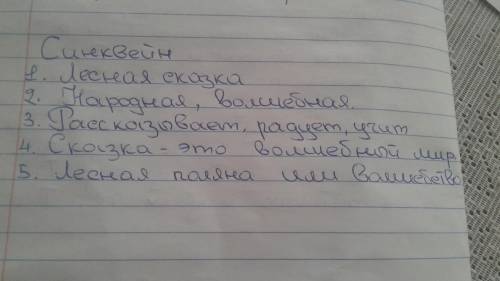 Синквейн
1. Лесная сказка
2. Народная, волшебная.
3. Рассказывает, радует, учит
4. Сказка - это волшебный мир.
5. Лесная поляна или Волшебство